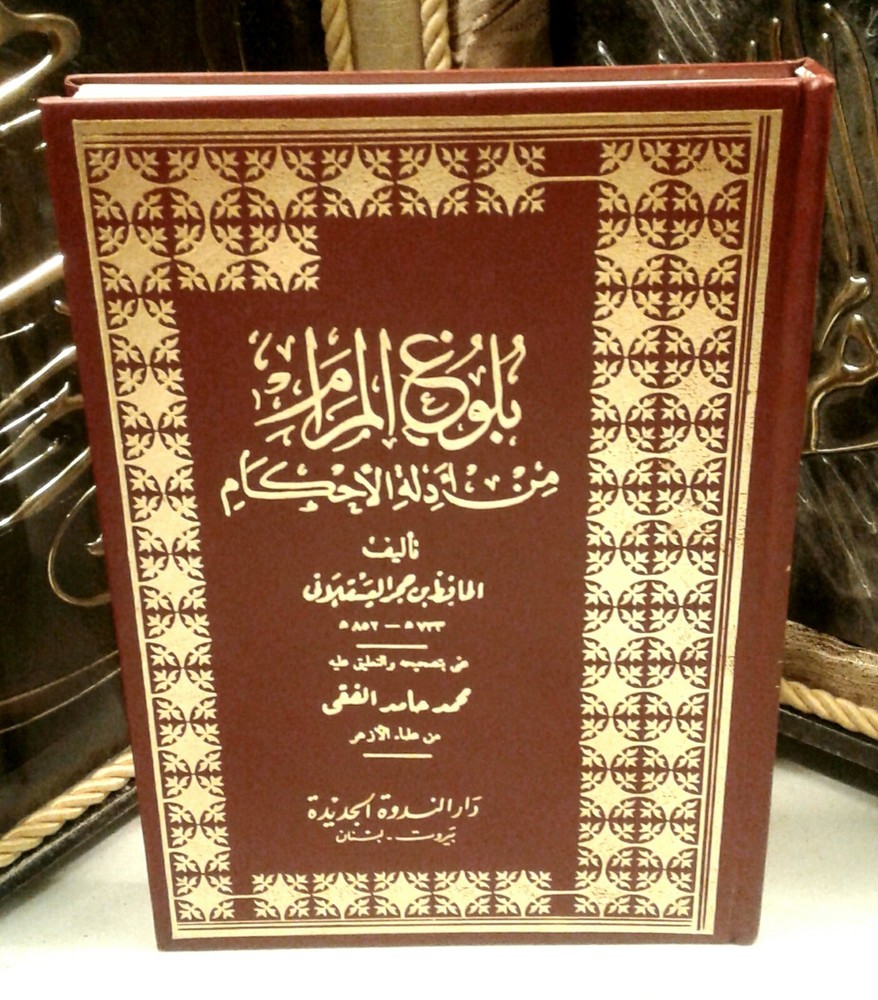 بُلُوغُ المَرَامِ
مِنْ أَدِلَّةِ الأَحْكَامِ
تأليف
الحافظ بن حجر العسقلانى
٧٧٣ ه‍ — ٨٥٢ ه‍
عنى بتصحيحه والتعليق عليه
محمد حامد الفقى
من علماء الأزهر
دَار النَدوَة الجَديْدَة
بَيروت - لبنان